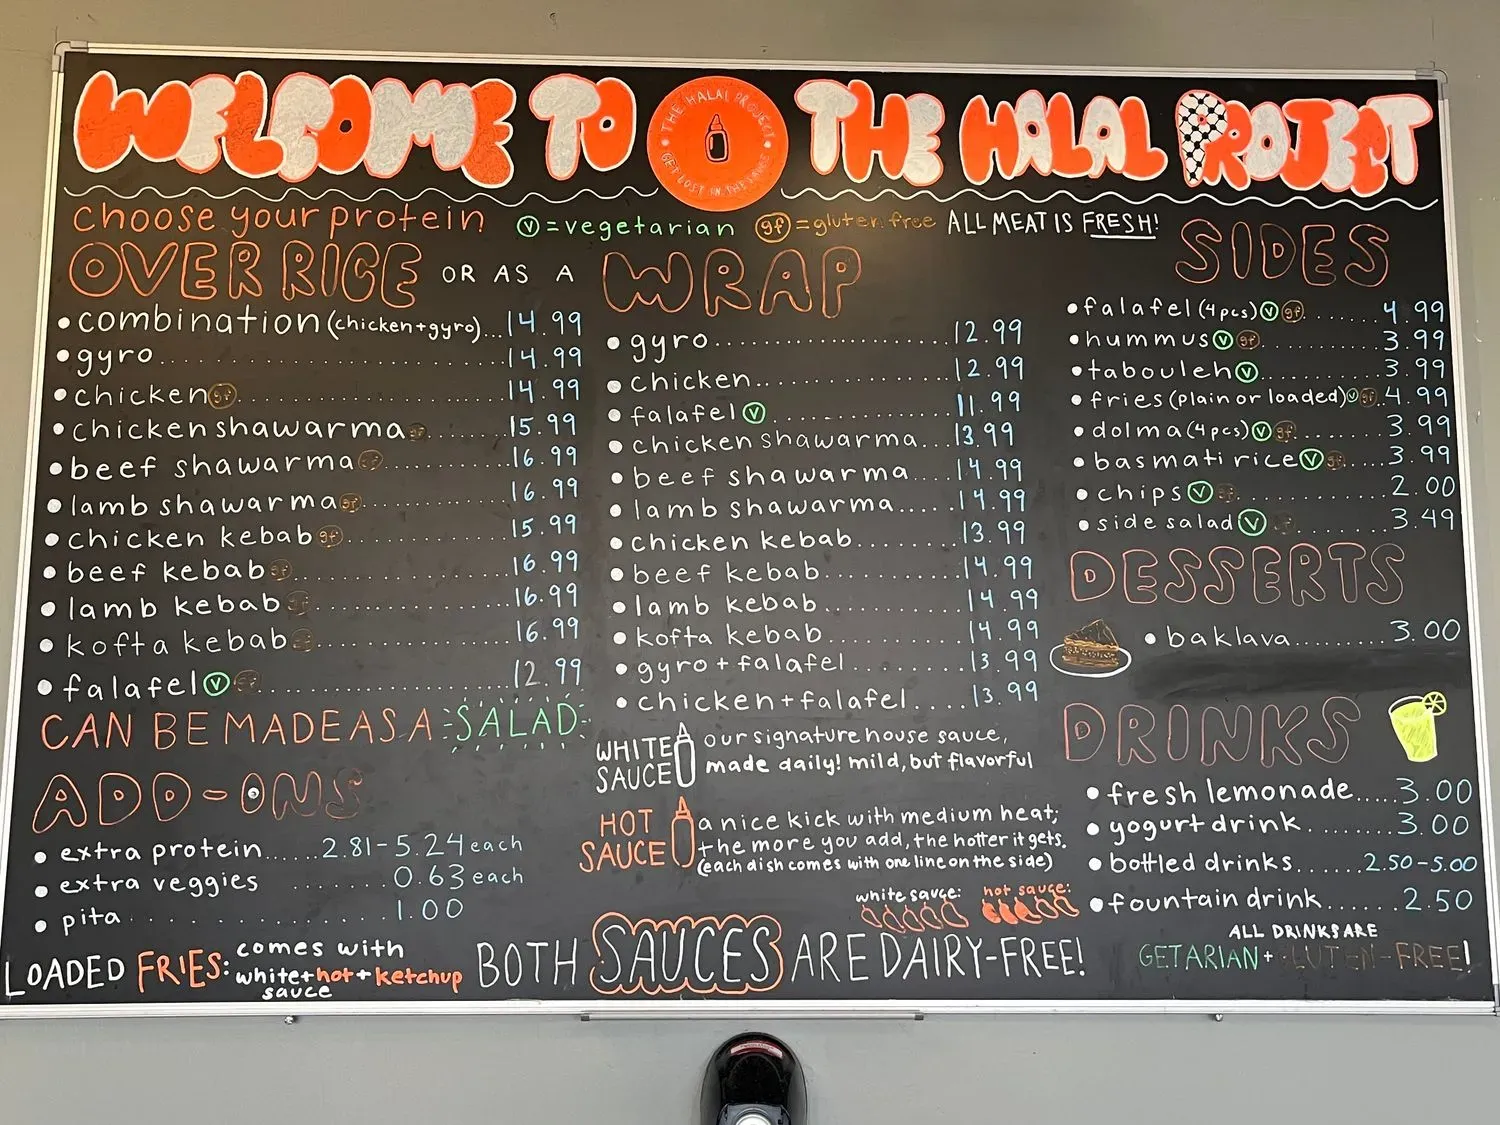 WELCOME TO THE HALAL PROJECT
THE HALAL PROJECT
GET LOST IN THE SAUCE
choose your protein
V = vegetarian gf = gluten free ALL MEAT IS FRESH!
OVER RICE OR AS A WRAP
• combination (chicken + gyro)... 14.99
• gyro.................... 14.99
• chicken gf.................... 14.99
• chicken shawarma gf........ 15.99
• beef shawarma gf............ 16.99
• lamb shawarma gf............ 16.99
• chicken kebab gf............ 15.99
• beef kebab gf................ 16.99
• lamb kebab gf................ 16.99
• kofta kebab gf................ 16.99
• falafel V gf.................... 12.99
CAN BE MADE AS A SALAD
ADD-ONS
• extra protein...... 2.81-5.24 each
• extra veggies ........ 0.63 each
• pita .............. 1.00
LOADED FRIES: comes with
white + hot + ketchup
sauce
• gyro.................... 12.99
• chicken.................. 12.99
• falafel V.................. 11.99
• chicken shawarma... 13.99
• beef shawarma..... 14.99
• lamb shawarma..... 14.99
• chicken kebab........ 13.99
• beef kebab............ 14.99
• lamb kebab............ 14.99
• kofta kebab............ 14.99
• gyro + falafel.......... 13.99
• chicken + falafel.... 13.99
WHITE SAUCE
our signature house sauce,
made daily! mild, but flavorful
HOT SAUCE
a nice kick with medium heat;
the more you add, the hotter it gets.
(each dish comes with one line on the side)
white sauce: hot sauce:
BOTH SAUCES ARE DAIRY-FREE!
SIDES
• falafel (4 pcs) V gf........ 4.99
• hummus V gf............ 3.99
• tabouleh V............ 3.99
• fries (plain or loaded) V gf.. 4.99
• dolma (4 pcs) V gf........ 3.99
• basmati rice V gf..... 3.99
• chips V gf............ 2.00
• side salad V gf........ 3.49
DESSERTS
• baklava.......... 3.00
DRINKS
• fresh lemonade..... 3.00
• yogurt drink........ 3.00
• bottled drinks...... 2.50-5.00
• fountain drink...... 2.50
ALL DRINKS ARE
GETARIAN + GLUTEN-FREE!